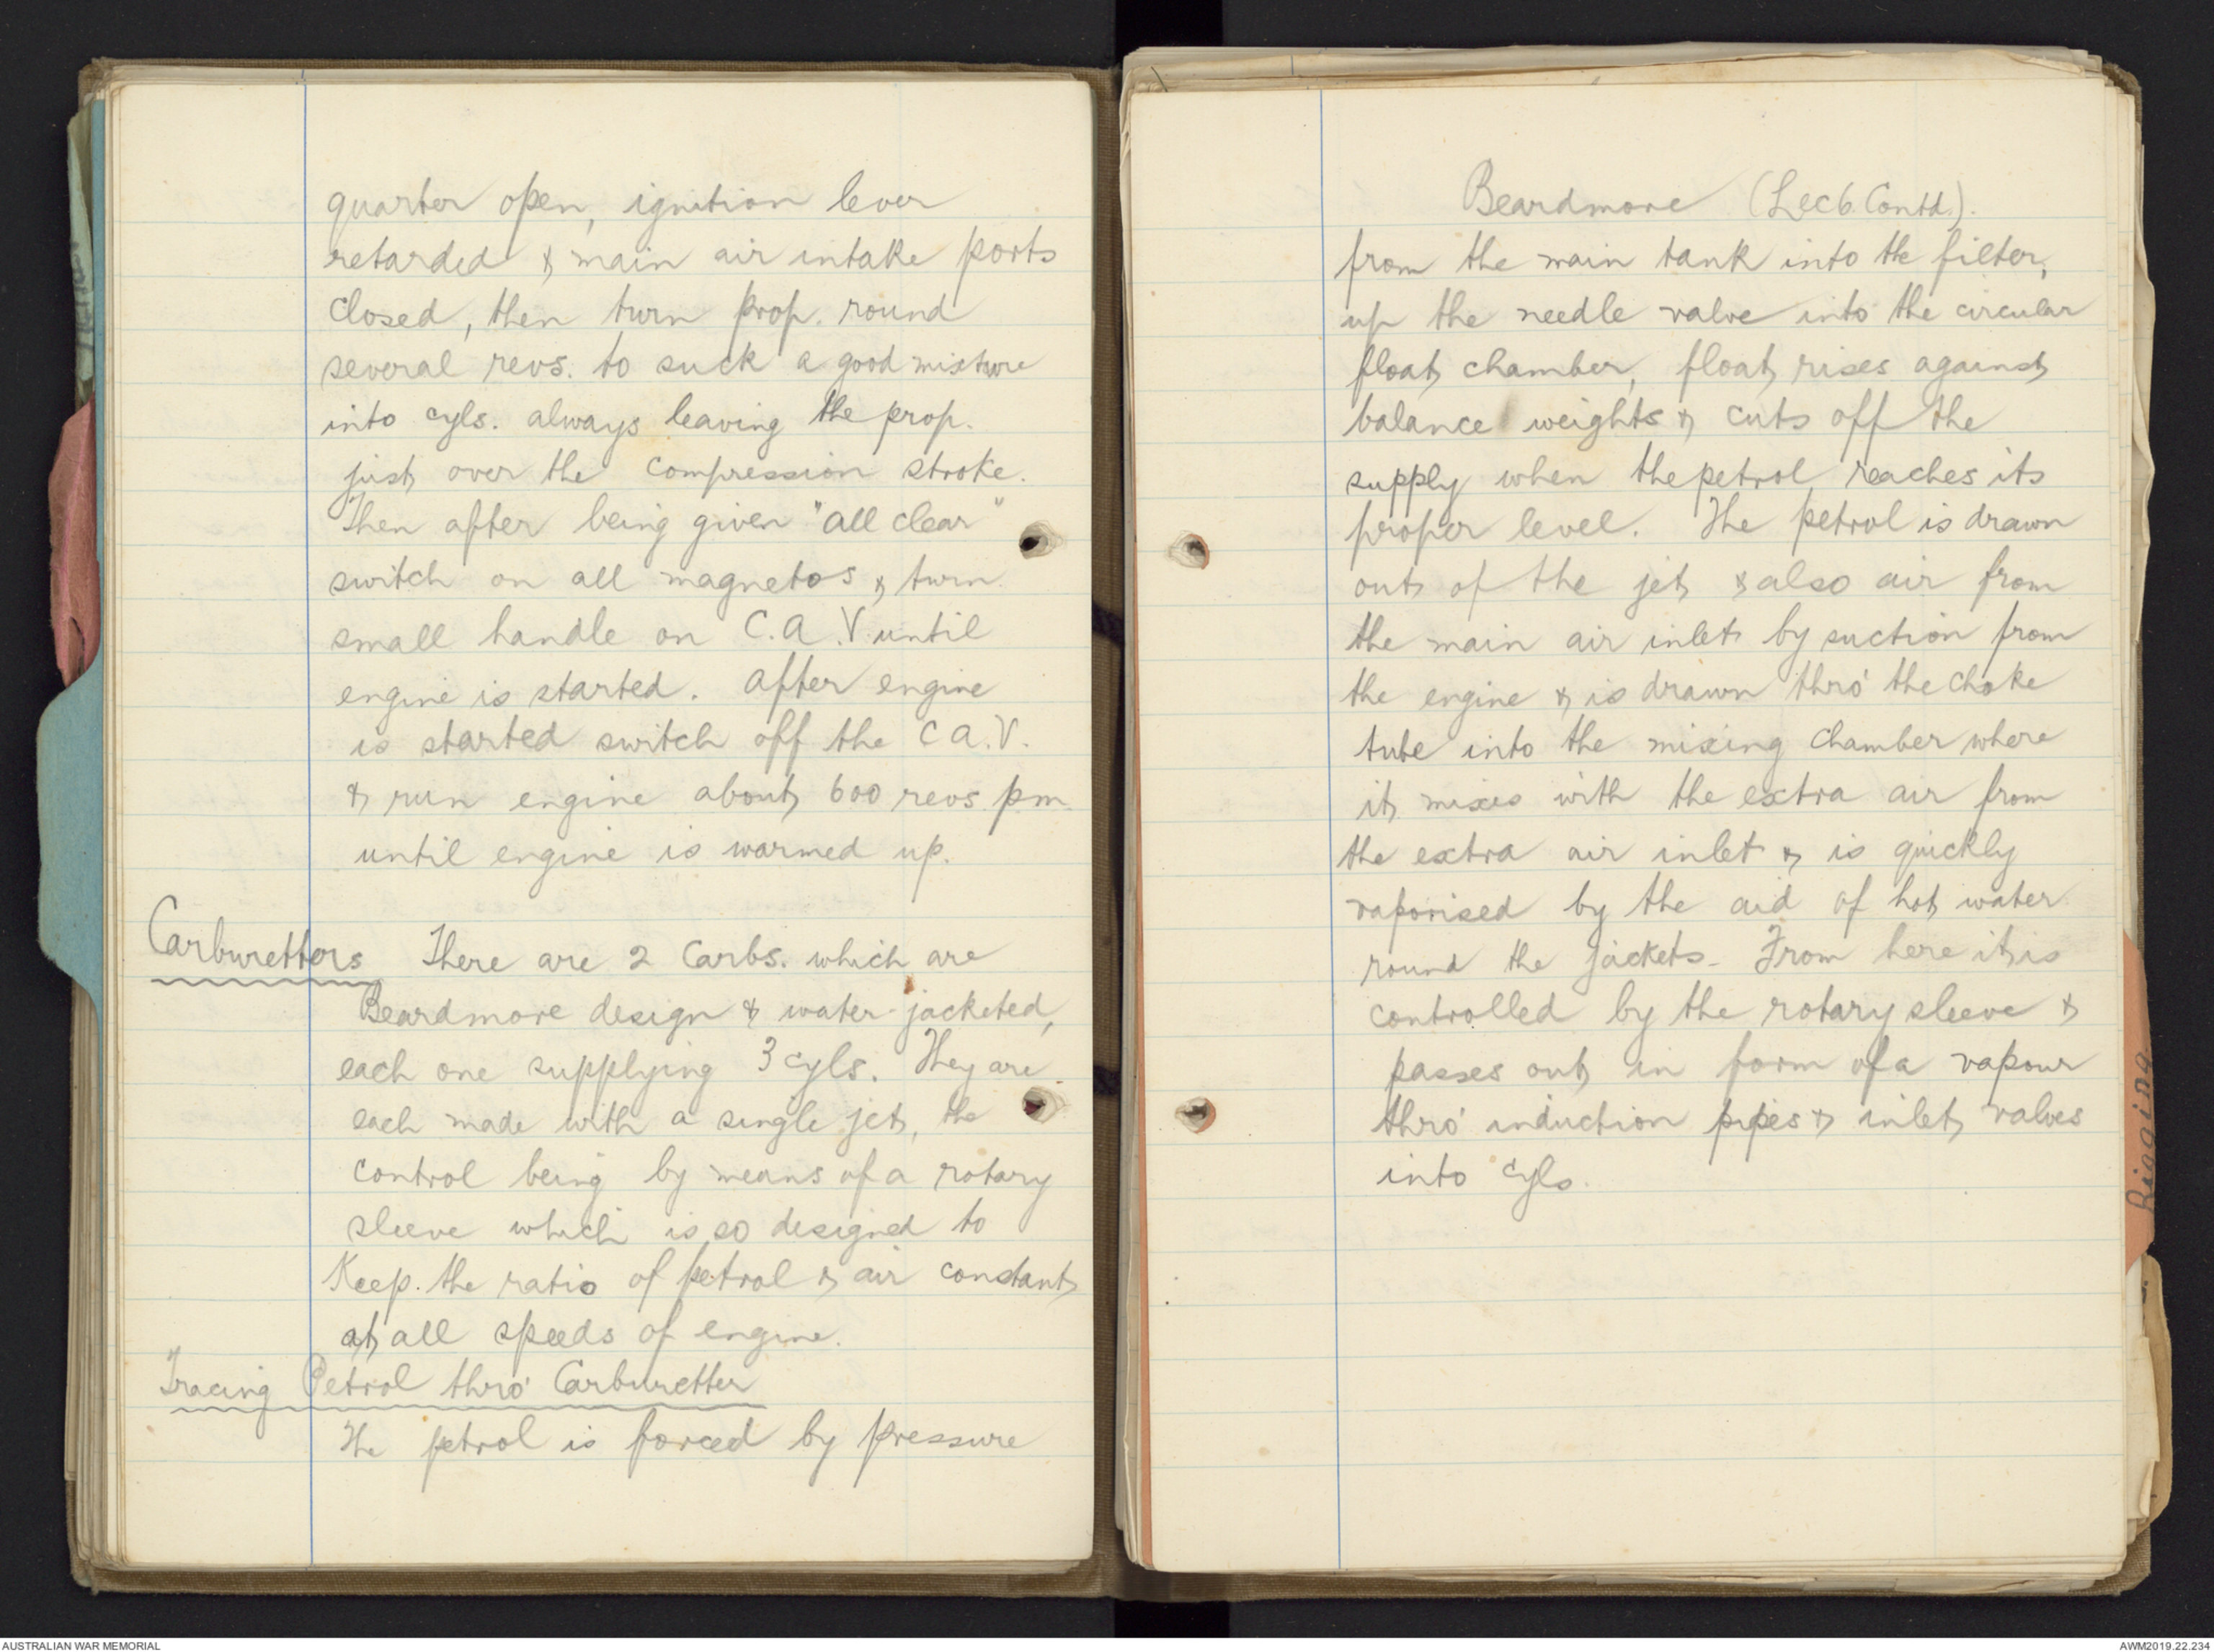 quarter open, ignition lever
retarded & main air intake ports
closed, then turn prop. round
several revs. to suck a good mixture
into cyls. always leaving the prop.
just over the compression stroke.
Then after being given "all clear"
switch on all magnetos & turn
small handle on C.A.V. until
engine is started. After engine
is started switch off the C A.V.
& run engine about 600 revs p.m
until engine is warmed up.
Carburettors There are 2 Carbs. which are
Beardmore design & water-jacketed,
each one supplying 3 cyls. They are
each made with a single jet, the
control being by means of a rotary
sleeve which is so designed to
Keep. the ratio of petrol & air constant
at all speeds of engine.
Tracing Petrol thro' Carburetter
The petrol is forced by pressure
Beardmore (Lec 6. Contd.).
from the main tank into the filter,
up the needle valve into the circular
float chamber, float rises against
balance weights & cuts off the
supply when the petrol reaches its
proper level. The petrol is drawn
out of the jet & also air from
the main air inlet by suction from
the engine & is drawn thro' the choke
tube into the mixing chamber where
it mixes with the extra air from
the extra air inlet & is quickly
vaporised by the aid of hot water
round the jackets. From here it is
controlled by the rotary sleeve &
passes out in form of a vapour
thro' induction pipes & inlet valves
into cyls.
Rigging
AUSTRALIAN WAR MEMORIAL
AWM2019.22.234